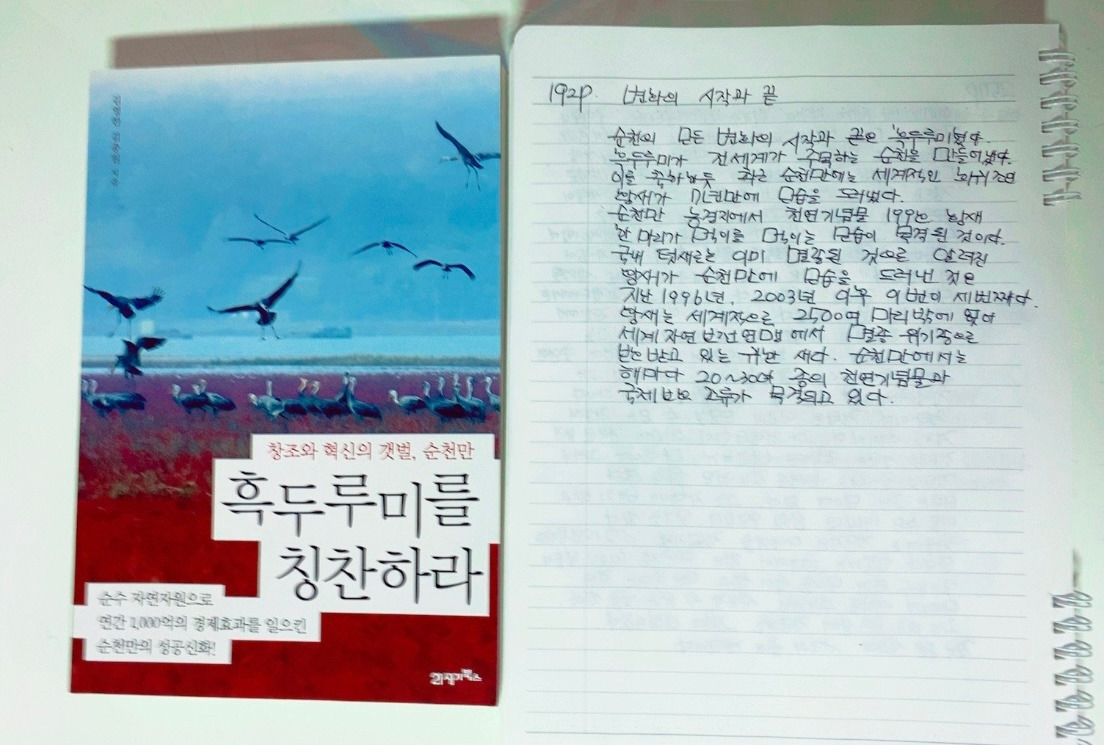 창조와 혁신의 갯벌, 순천만
흑두루미를
칭찬하라
순수 자연자원으로
연간 1,000억의 경제효과를 일으킨
순천만의 성공신화!
21세기북스
192p. 변화의 시작과 끝
순천의 모든 변화의 시작과 끝은 흑두루미였다.
흑두루미가 전세계가 주목하는 순천을 만들어냈다.
이를 축하하듯 최근 순천만에는 세계적인 희귀조인
황새가 7년만에 모습을 드러냈다.
순천만 농경지에서 천연기념물 199호 황새
한 마리가 먹이를 먹이는 모습이 목격된 것이다.
국내 텃새로는 이미 멸종된 것으로 알려진
황새가 순천만에 모습을 드러낸 것은
지난 1996년, 2003년 이후 이번이 세번째다.
황새는 세계적으로 2500여 마리밖에 없어
세계자연보전연맹에서 멸종 위기종으로
보호받고 있는 귀한 새다. 순천만에서는
해마다 20~30여 종의 천연기념물과
국제보호 조류가 목격되고 있다.